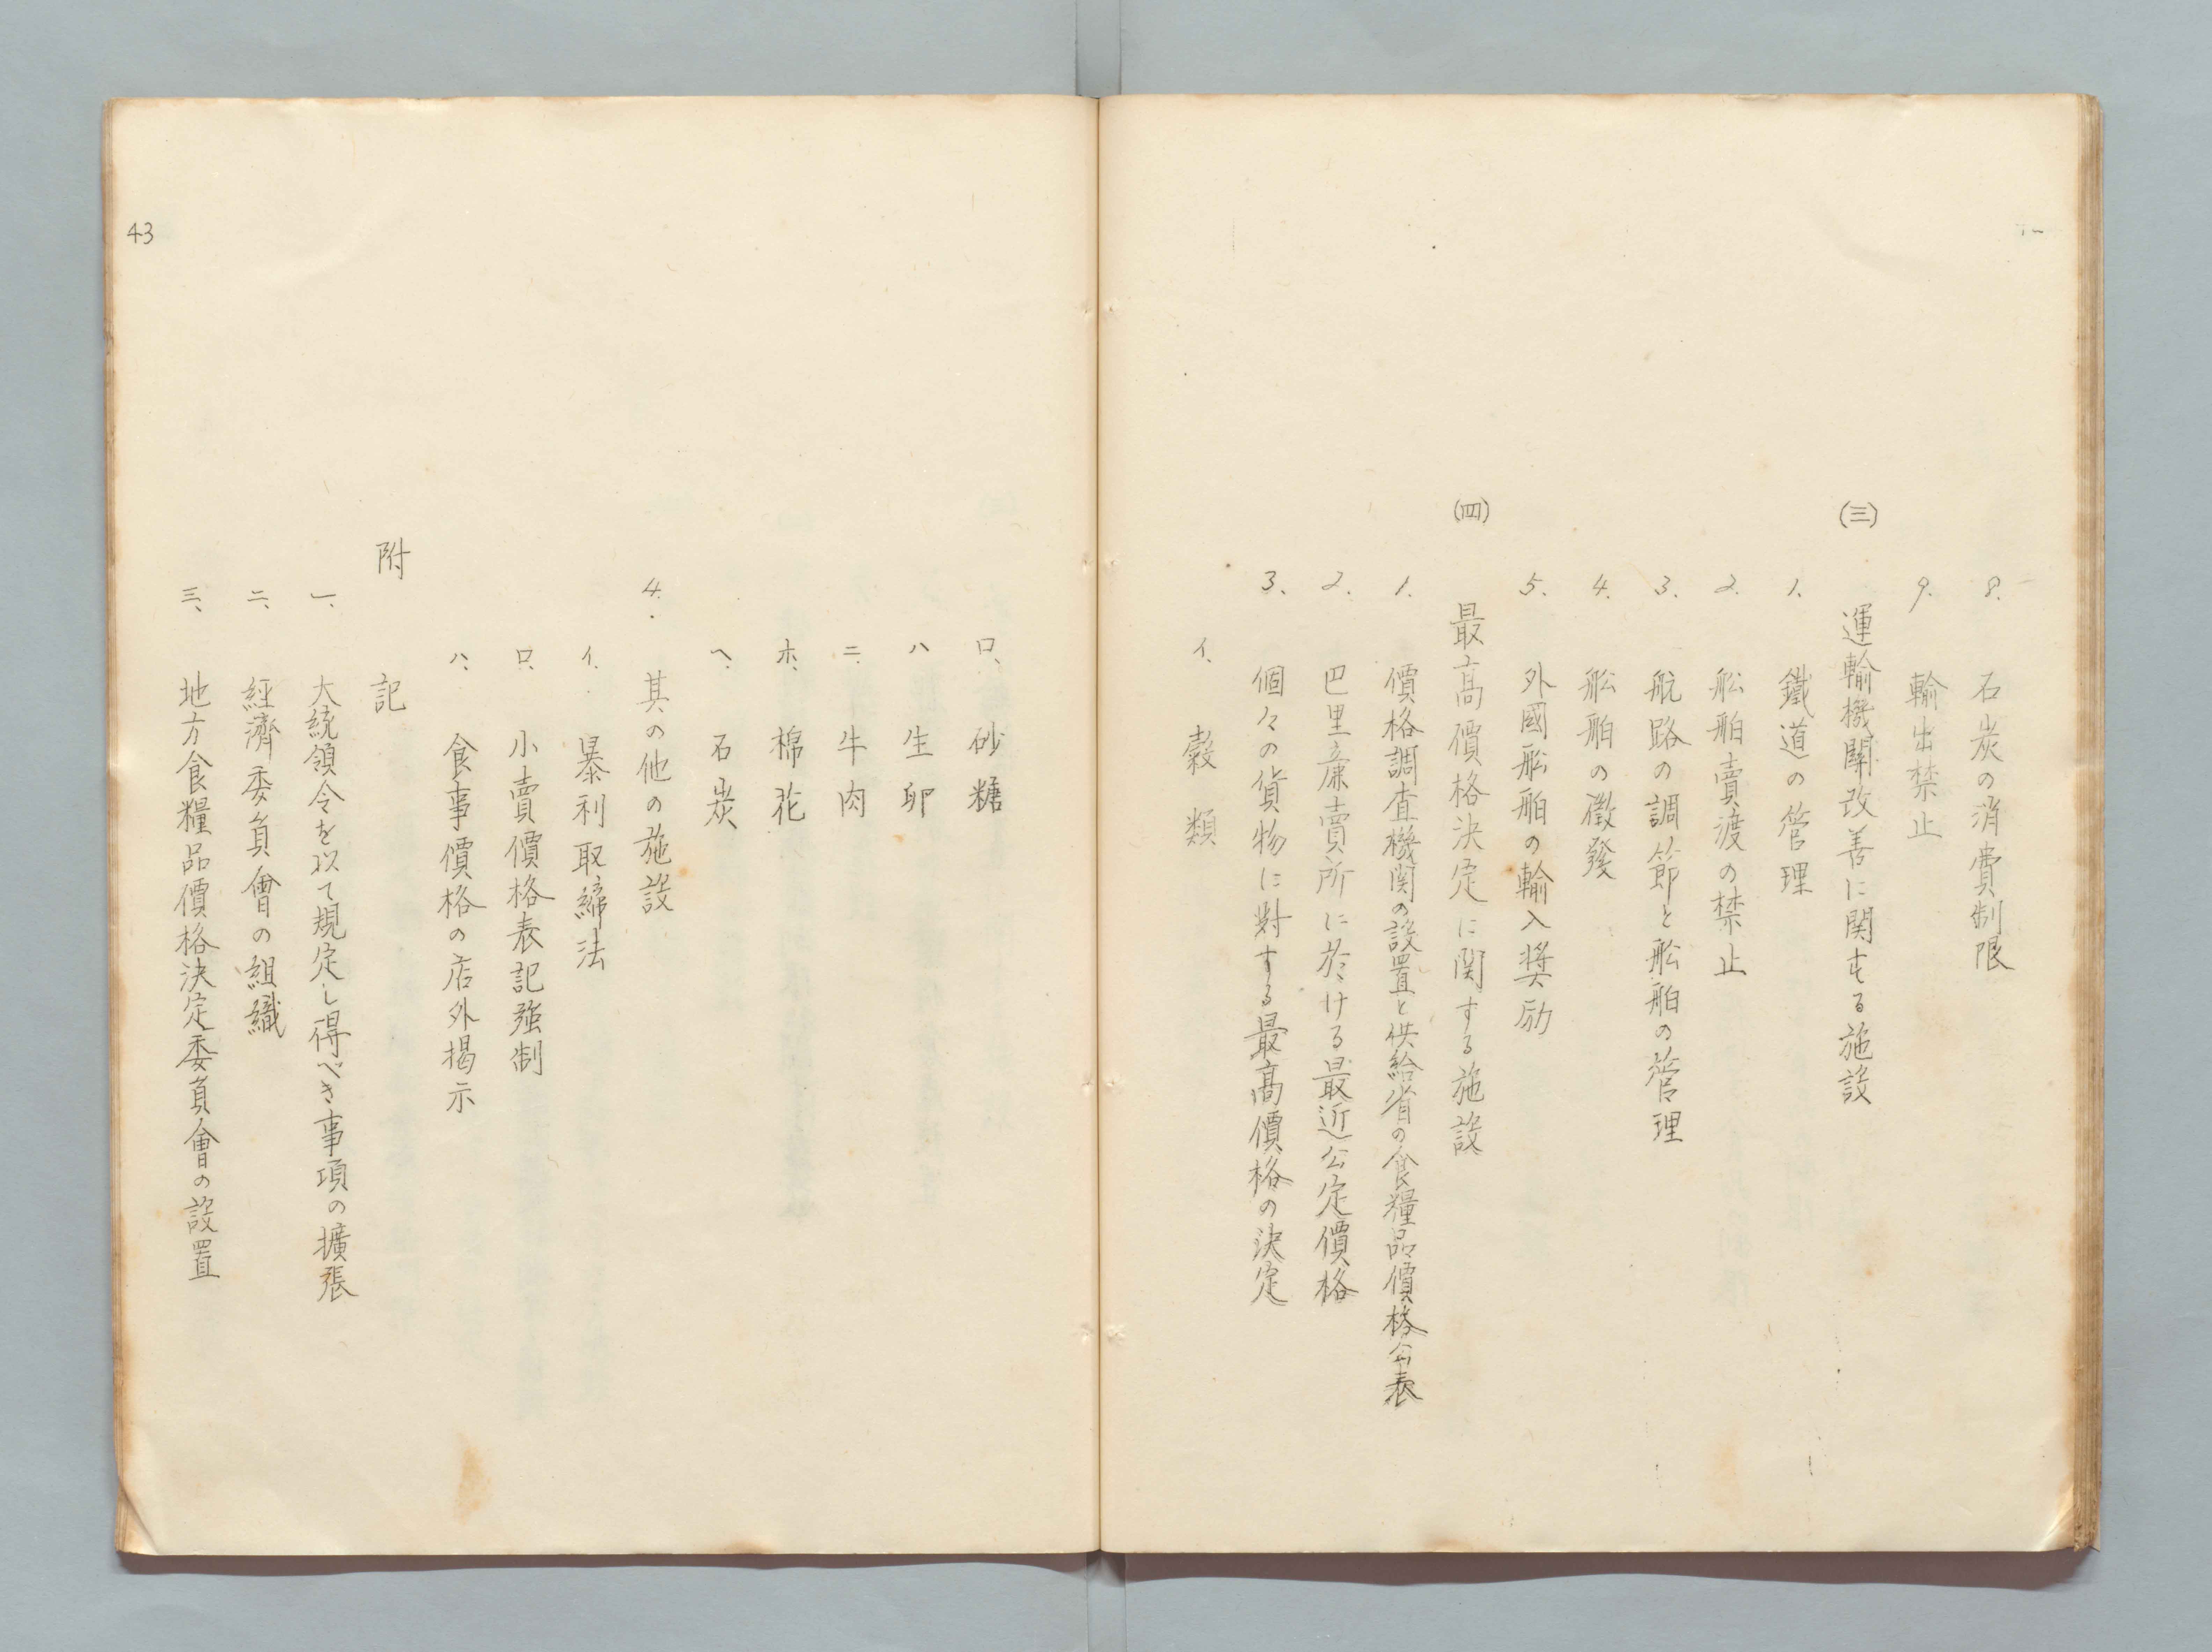 8. 石炭の消費制限
9. 輸出禁止
(三) 運輸機關改善に関する施設
1、 鐵道の管理
2. 船舶賣渡の禁止
3. 航路の調節と船舶の管理
4. 船舶の徴發
5、 外國船舶の輸入奬励
(四) 最高價格決定に関する施設
1. 價格調査機関の設置と供給省の食糧品價格公表
2. 巴里廉賣所に於ける最近公定價格
3、 個々の貨物に對する最高價格の決定
イ、 穀類
ロ、 砂糖
ハ 生卵
ニ. 牛肉
ホ、 棉花
ヘ、 石炭
4. 其の他の施設
イ. 暴利取締法
ロ. 小賣價格表記强制
ハ、 食事價格の店外掲示
附記
一、 大統領令を以て規定し得べき事項の擴張
二、 經濟委員會の組織
三、 地方食糧品價格決定委員會の設置
43